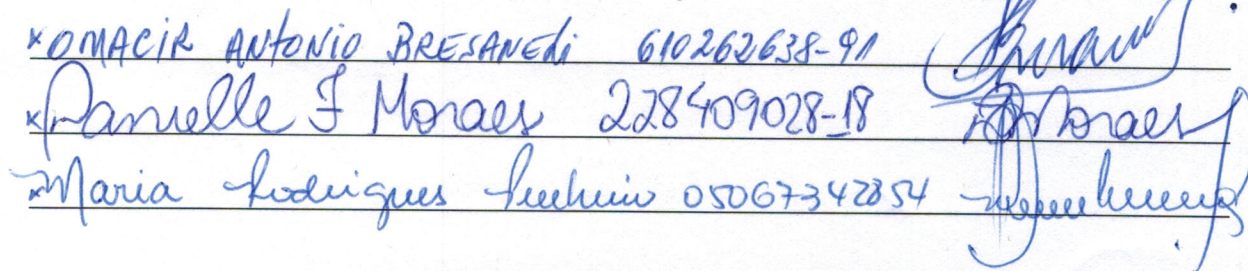 xOMACIR ANTONIO BRESANELi 610262638-91
xDanielle F Moraes 228409028-18 Moraes
xMaria Rodrigues 05067342854